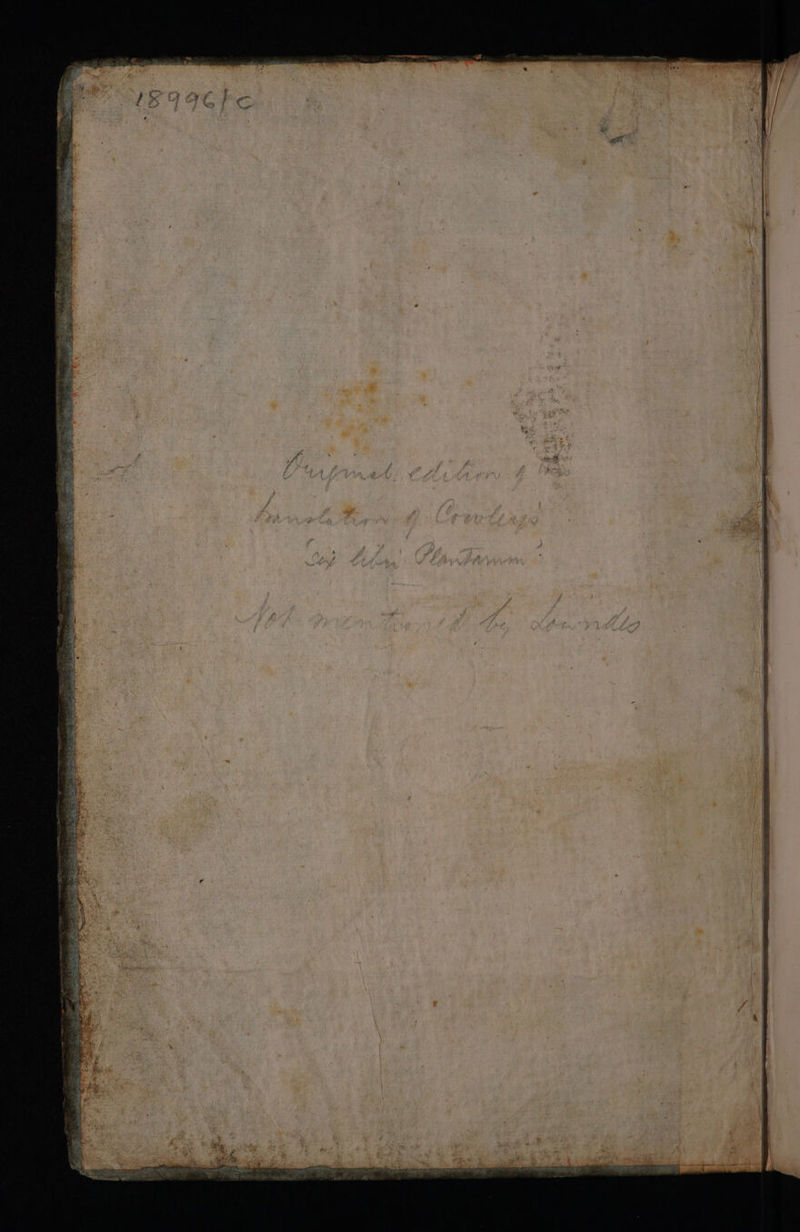 18996/C
Original edition of the
translation of Cowley's
"Sex libri Plantarum"
Not mentioned by Lowndes